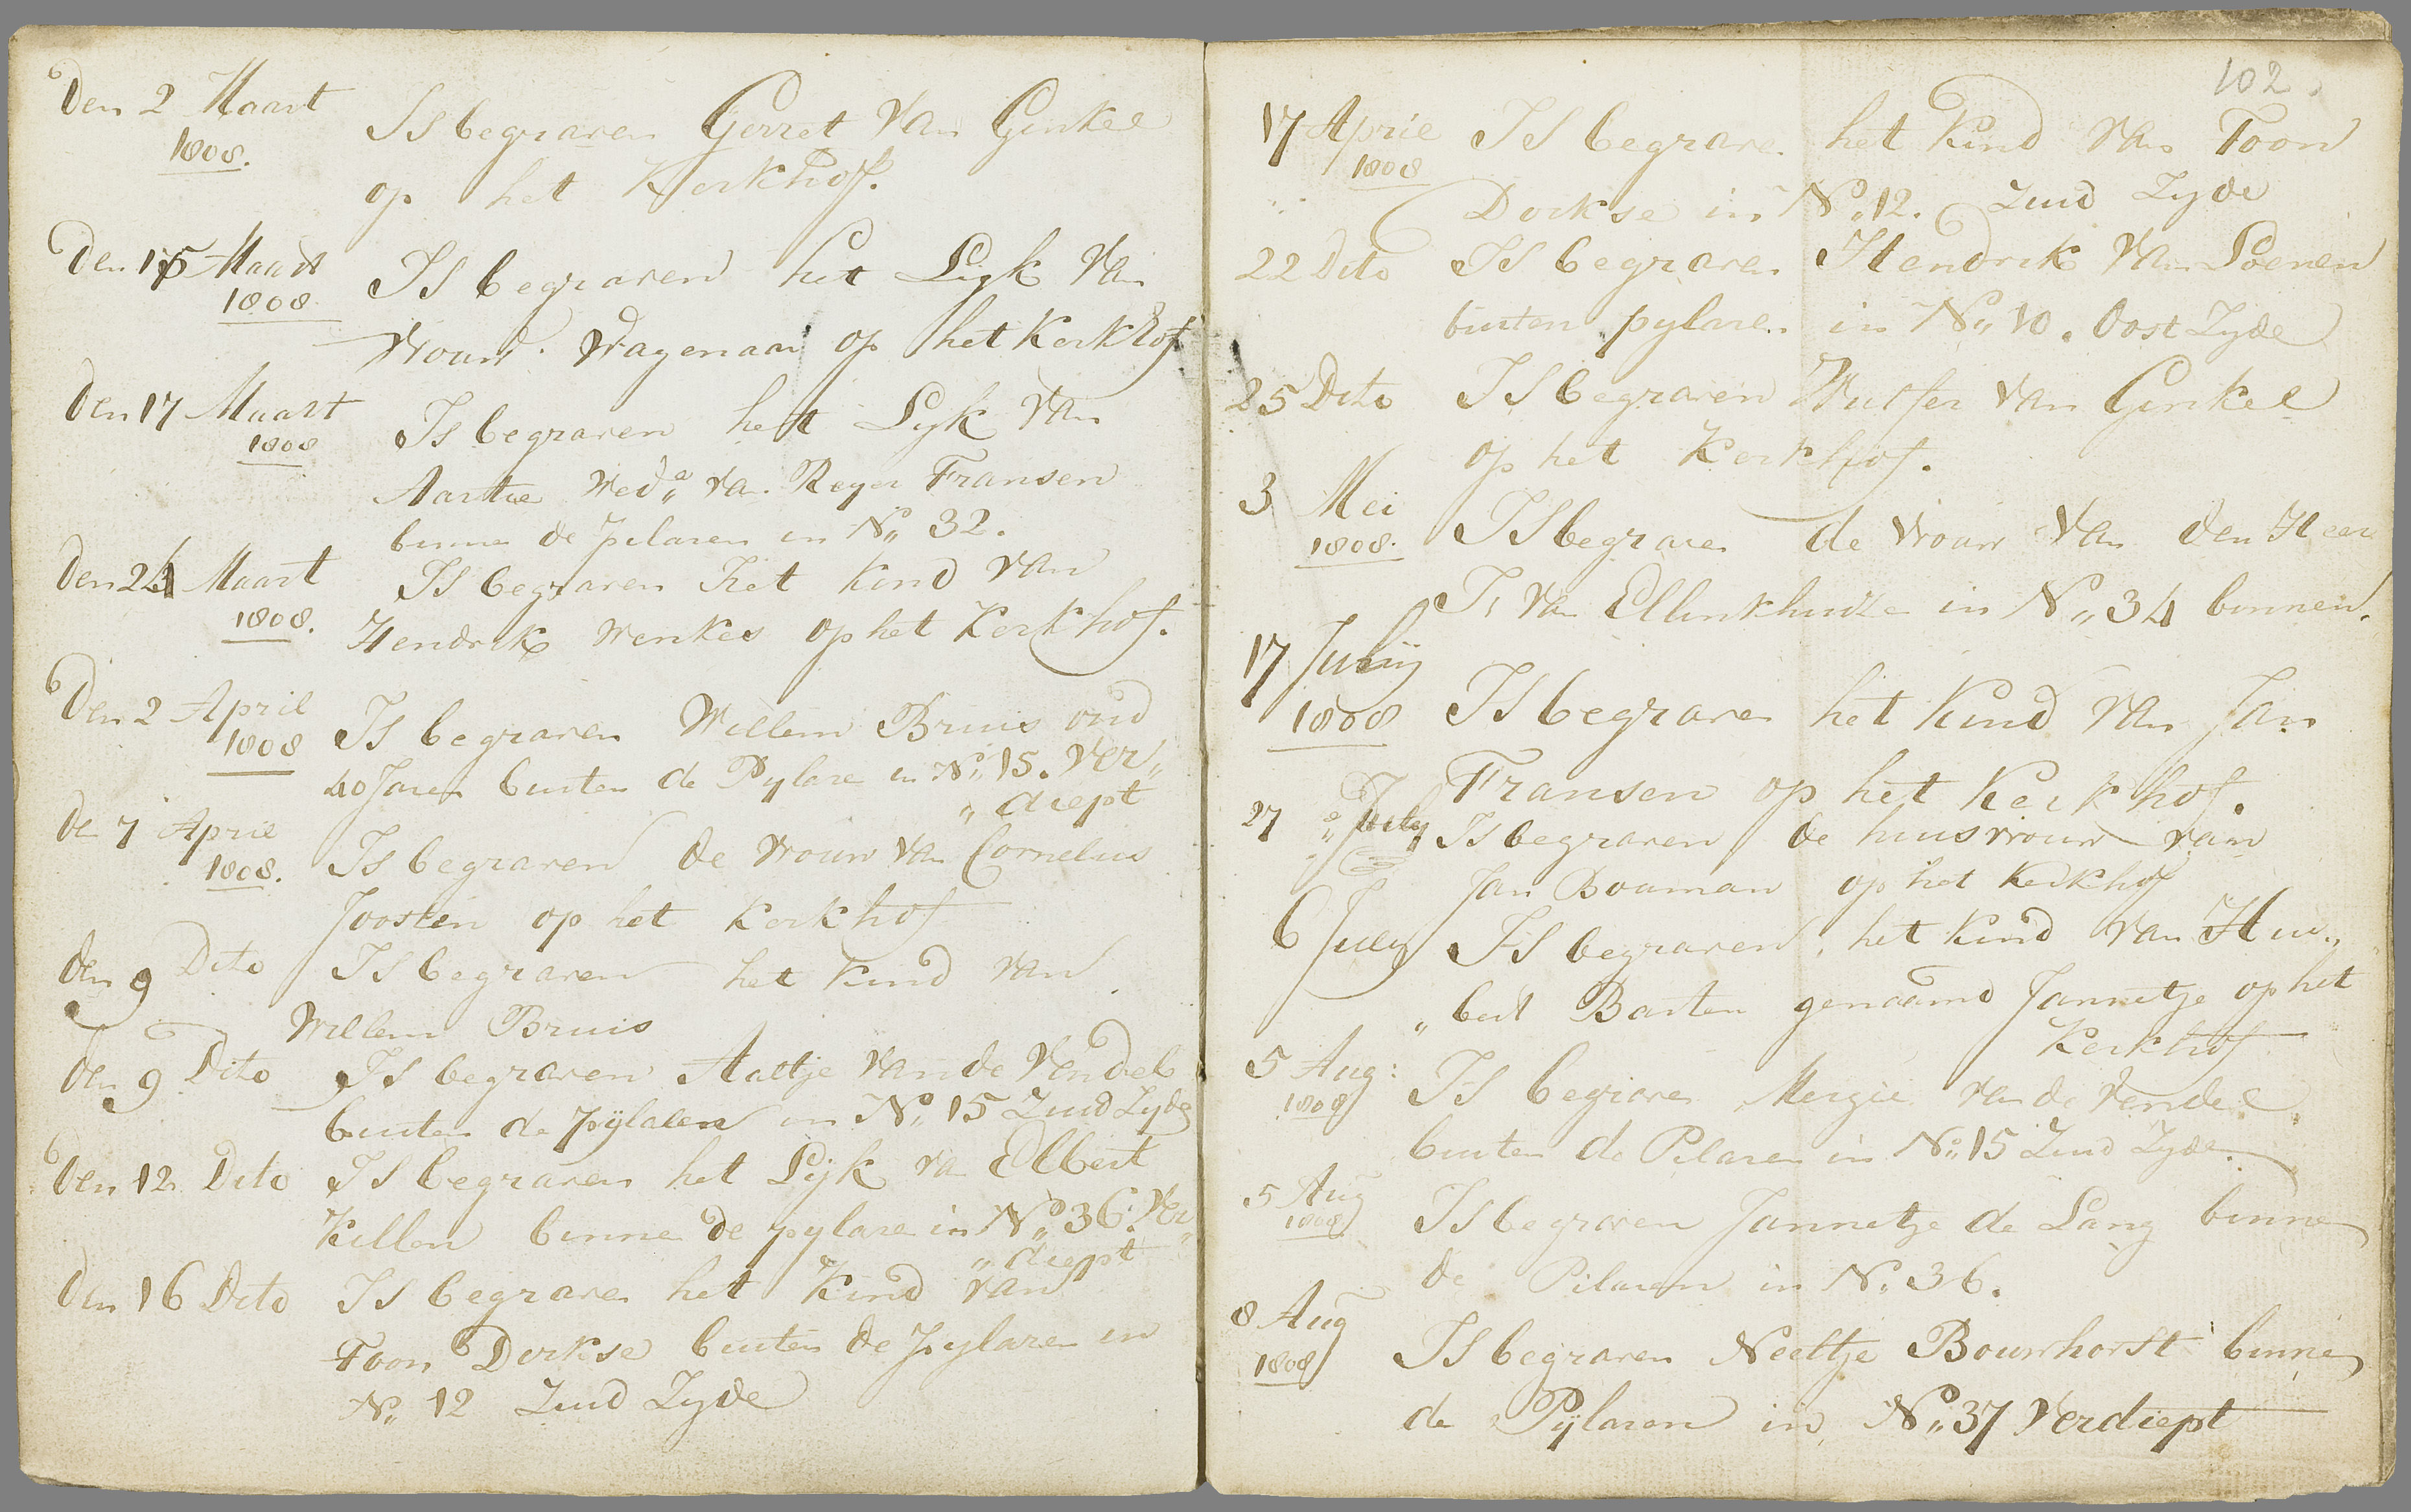 Den 2 Maart Is begraven Gerret van Ginkel
1808. op het Kerkhof.
Den 15 Maart Is begraven het Lijk van
1808 vrouw Wagenaar op het Kerkhof
Den 17 Maart Is begraven het Lijk van
1808 Aartie Wede van Reyer Fransen
binne de pilaren in No 32.
Den 24 Maart Is begraven Het Kind van
1808. Hendrik Wenkes op het Kerkhof.
Den 2 April Is begraven Willem Bruis oud
1808 40 Jaren buiten de Pylare in No 15. Ver„
„ diept
den 7 April Is begraven de vrouw van Cornelius
1808. Joosten op het Kerkhof
den 9 Dito Is begraven het kind van
Willem Bruis
den 9 Dito Is begraven Aaltje van de Vendel
buiten de pijlaren in No 15 Zuid Zyde
Den 12 Dito Is begraven het Lijk van Elbert
Killen binne de pylare in No 36. Ver„
„ diept
den 16 Dito Is begrave het Kind van
Toon Dirkse buiten de pylaren in
No 12 Zuid Zyde
102.
17 April Is begrave het Kind van Toon
1808 Dorkse in No 12. Zuid Zyde
22 Dito Is begraven Hendrik van Loenen
buiten pylaren in No 10. Oost Zyde
25 Dito Is begraven van Ginkel
op het Kerkhof.
3 Mei Is begraven de vrouw van den Heer
1808. van Ellinkhuize in No 34 binnen.
17 Is begraven het Kind van Jan
1808 Fransen op het Kerkhof.
27 Is begraven de huisvrouw van
Jan Bouman op het kerkhof
6 July Is begraven het kind van Hui„
„ bert Barten genaamd Jannetje op het
Kerkhof
5 Aug: Is begraven Mergie van de Vendel
1808 buiten de Pilaren in No 15 Zuid Zyde.
5 Aug Is begraven Jannetje de Lang binnen
1808 de Pilaren in No 36.
8 Aug Is begraven Neeltje Bouwhorst binnen
1808 de Pijlaren in No 37 Verdiept